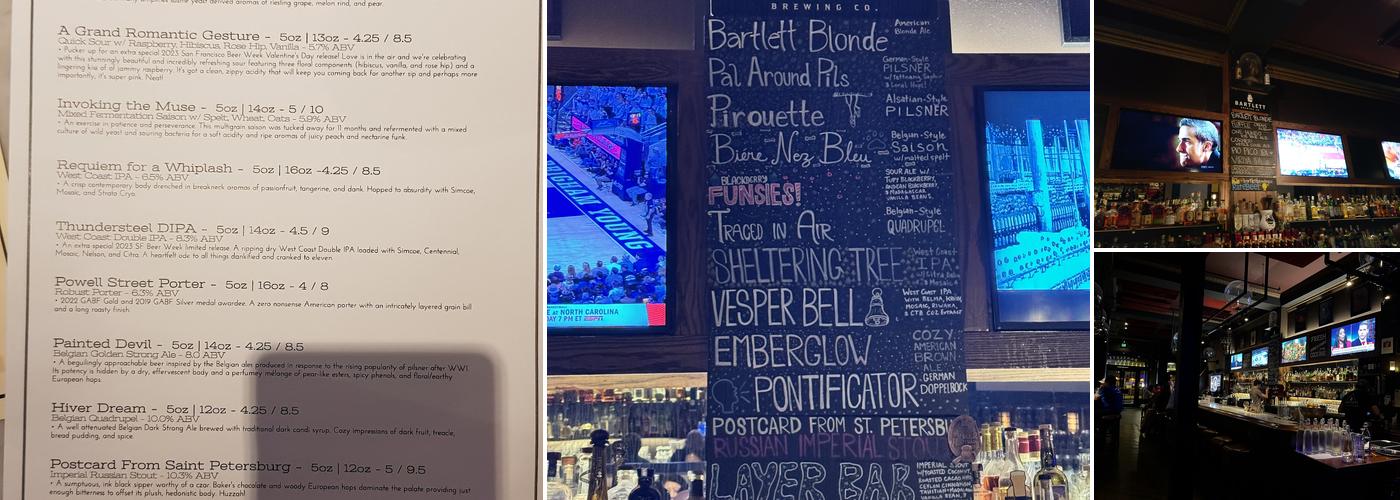 amplifies subtle yeast derived aromas of riesling grape, melon rind, and pear.
A Grand Romantic Gesture - 5oz | 13oz - 4.25 / 8.5
Quick Sour w/ Raspberry, Hibiscus, Rose Hip, Vanilla - 5.7% ABV
• Pucker up for an extra special 2023 San Francisco Beer Week Valentine's Day release! Love is in the air and we're celebrating
with this stunningly beautiful and incredibly refreshing sour featuring three floral components (hibiscus, vanilla, and rose hip) and a
lingering kiss of of jammy raspberry. It's got a clean, zippy acidity that will keep you coming back for another sip and perhaps more
importantly, it's super pink. Neat!
Invoking the Muse - 5oz | 14oz - 5 / 10
Mixed Fermentation Saison w/ Spelt, Wheat, Oats - 5.9% ABV
• An exercise in patience and perseverance. This multigrain saison was tucked away for 11 months and refermented with a mixed
culture of wild yeast and souring bacteria for a soft acidity and ripe aromas of juicy peach and nectarine funk.
Requiem for a Whiplash - 5oz | 16oz -4.25 / 8.5
West Coast IPA - 6.5% ABV
• A crisp contemporary body drenched in breakneck aromas of passionfruit, tangerine, and dank. Hopped to absurdity with Simcoe,
Mosaic, and Strata Cryo.
Thundersteel DIPA - 5oz | 14oz - 4.5 / 9
West Coast Double IPA - 8.3% ABV
• An extra special 2023 SF Beer Week limited release. A ripping dry West Coast Double IPA loaded with Simcoe, Centennial,
Mosaic, Nelson, and Citra. A heartfelt ode to all things dankified and cranked to eleven.
Powell Street Porter - 5oz | 16oz - 4 / 8
Robust Porter - 6.3% ABV
• 2022 GABF Gold and 2019 GABF Silver medal awardee. A zero nonsense American porter with an intricately layered grain bill
and a long roasty finish.
Painted Devil - 5oz | 14oz - 4.25 / 8.5
Belgian Golden Strong Ale - 8.0 ABV
• A beguilingly approachable beer inspired by the Belgian ales produced in response to the rising popularity of pilsner after WW1.
Its potency is hidden by a dry, effervescent body and a perfumey mélange of pear-like esters, spicy phenols, and floral/earthy
European hops.
Hiver Dream - 5oz | 12oz - 4.25 / 8.5
Belgian Quadrupel - 10.0% ABV
• A well attenuated Belgian Dark Strong Ale brewed with traditional dark candi syrup. Cozy impressions of dark fruit, treacle,
bread pudding, and spice.
Postcard From Saint Petersburg - 5oz | 12oz - 5 / 9.5
Imperial Russian Stout - 10.3% ABV
• A sumptuous, ink black sipper worthy of a czar. Baker's chocolate and woody European hops dominate the palate providing just
enough bitterness to offset its plush, hedonistic body. Huzzah!
BREWING CO.
Bartlett Blonde
American
Blonde Ale
Pal Around Pils
German-Style
PILSNER
Pirouette
Alsatian-Style
PILSNER
Bière Nez Bleu
Belgian-Style
Saison
w/ malted spelt
BLACKBERRY
FUNSIES!
SOUR ALE w/
TUFF BLACKBERRY,
ANDEAN BLACKBERRY
& MADAGASCAR
VANILLA BEANS.
TRACED IN AIR
Belgian-Style
QUADRUPEL
SHELTERING TREE
West Coast
IPA
VESPER BELL
WEST COAST IPA
WITH BELMA,
MOSAIC, RIWAKA,
& CTB CO2 EXTRACT
EMBERGLOW
COZY
AMERICAN
BROWN
ALE
PONTIFICATOR
GERMAN
DOPPELBOCK
POSTCARD FROM ST. PETERSBU
RUSSIAN IMPERIAL S
LAYER BAR
IMPERIAL STOUT
w/ TOASTED COCONUT,
ROASTED CACAO NIBS
CEYLON CINNAMON
VANILLA BEAN
BRIGHAM YOUNG
E at NORTH CAROLINA
DAY 7 PM ET ESPN
BARTLETT
BARTLETT BLONDE